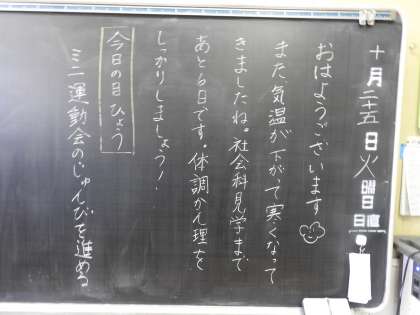 十月二十五日火曜日
日直
おはようございます
また気温が下がて寒くなって
きましたね。社会科見学まで
あと6日です。体調かん理を
しっかりしましょう!
今日の目ひょう
ミニ運動会のじゅんびを進める